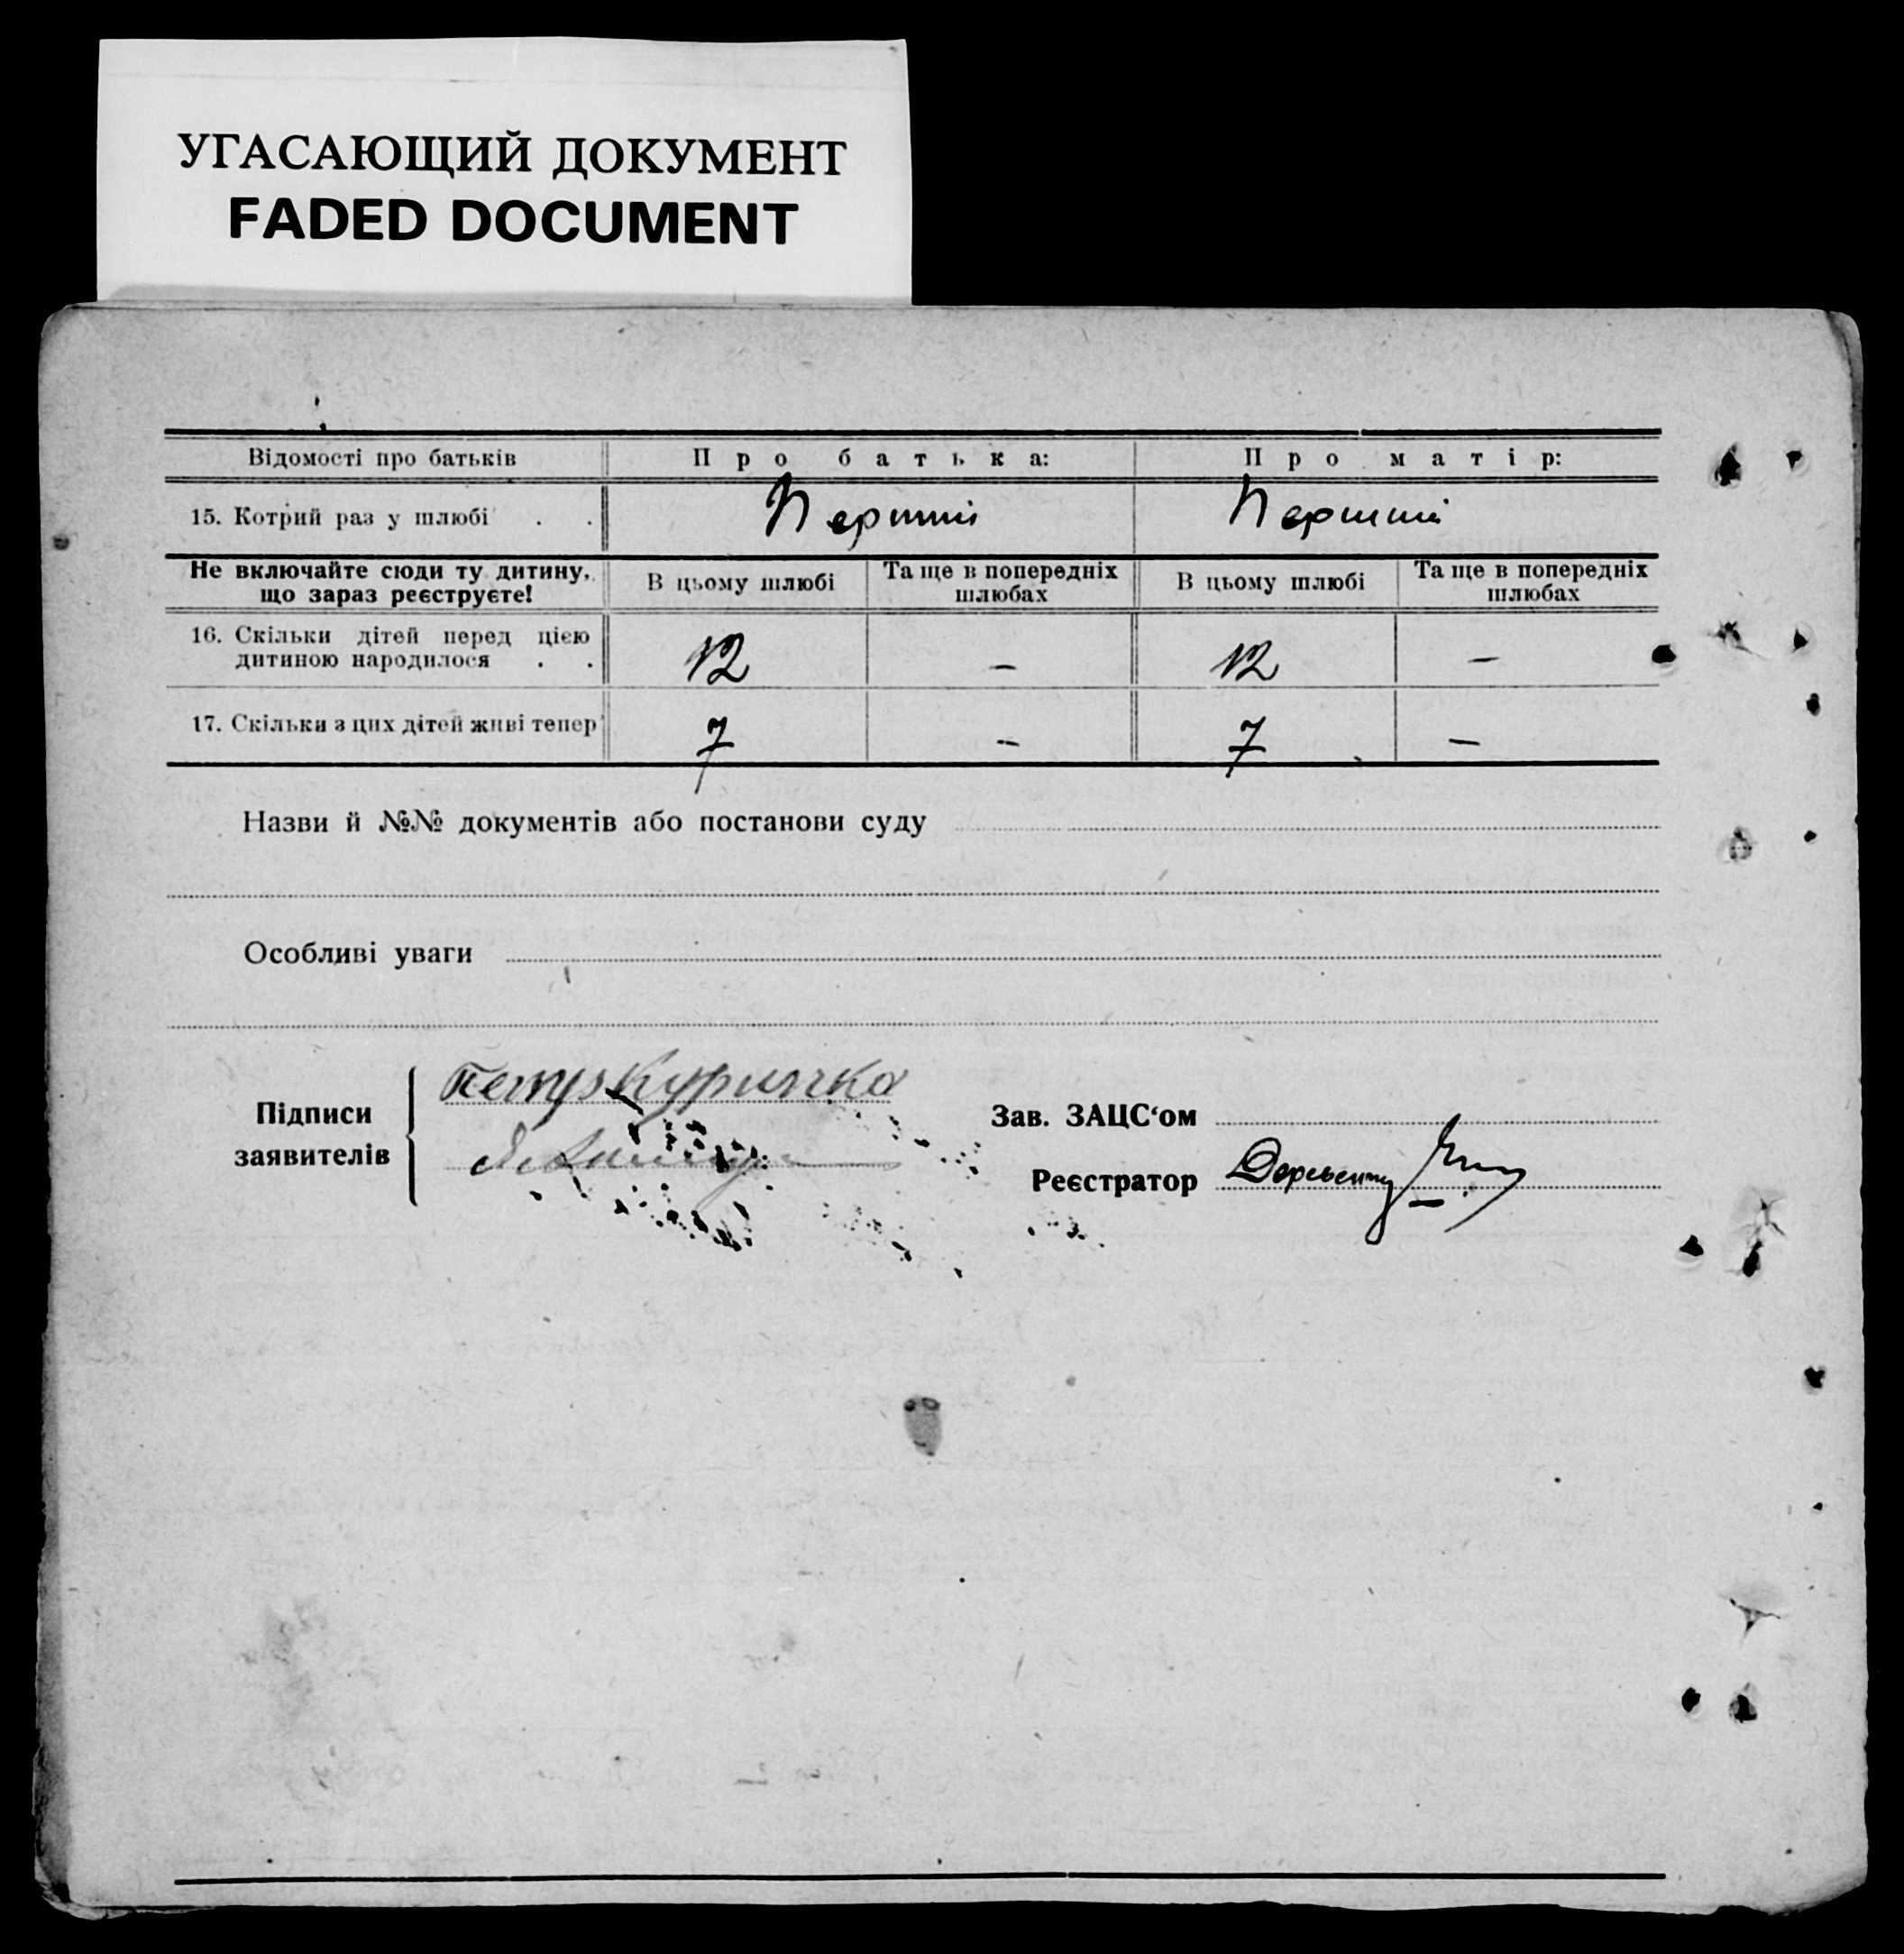 УГАСАЮЩИЙ ДОКУМЕНТ
FADED DOCUMENT
Відомості про батьків Про батька: Про матір:
15. Котрий раз у шлюбі . . Перший Перший
Не включайте сюди ту дитину, що зараз реєструєте! В цьому шлюбі Та ще в попередніх шлюбах В цьому шлюбі Та ще в попередніх шлюбах
16. Скільки дітей перед цією дитиною народилося . . 12 – 12 –
17. Скільки з цих дітей живі тепер 7 – 7 –
Назви й №№ документів або постанови суду
Особливі уваги
Підписи заявителів
Петр
Зав. ЗАЦС‘ом
Реєстратор